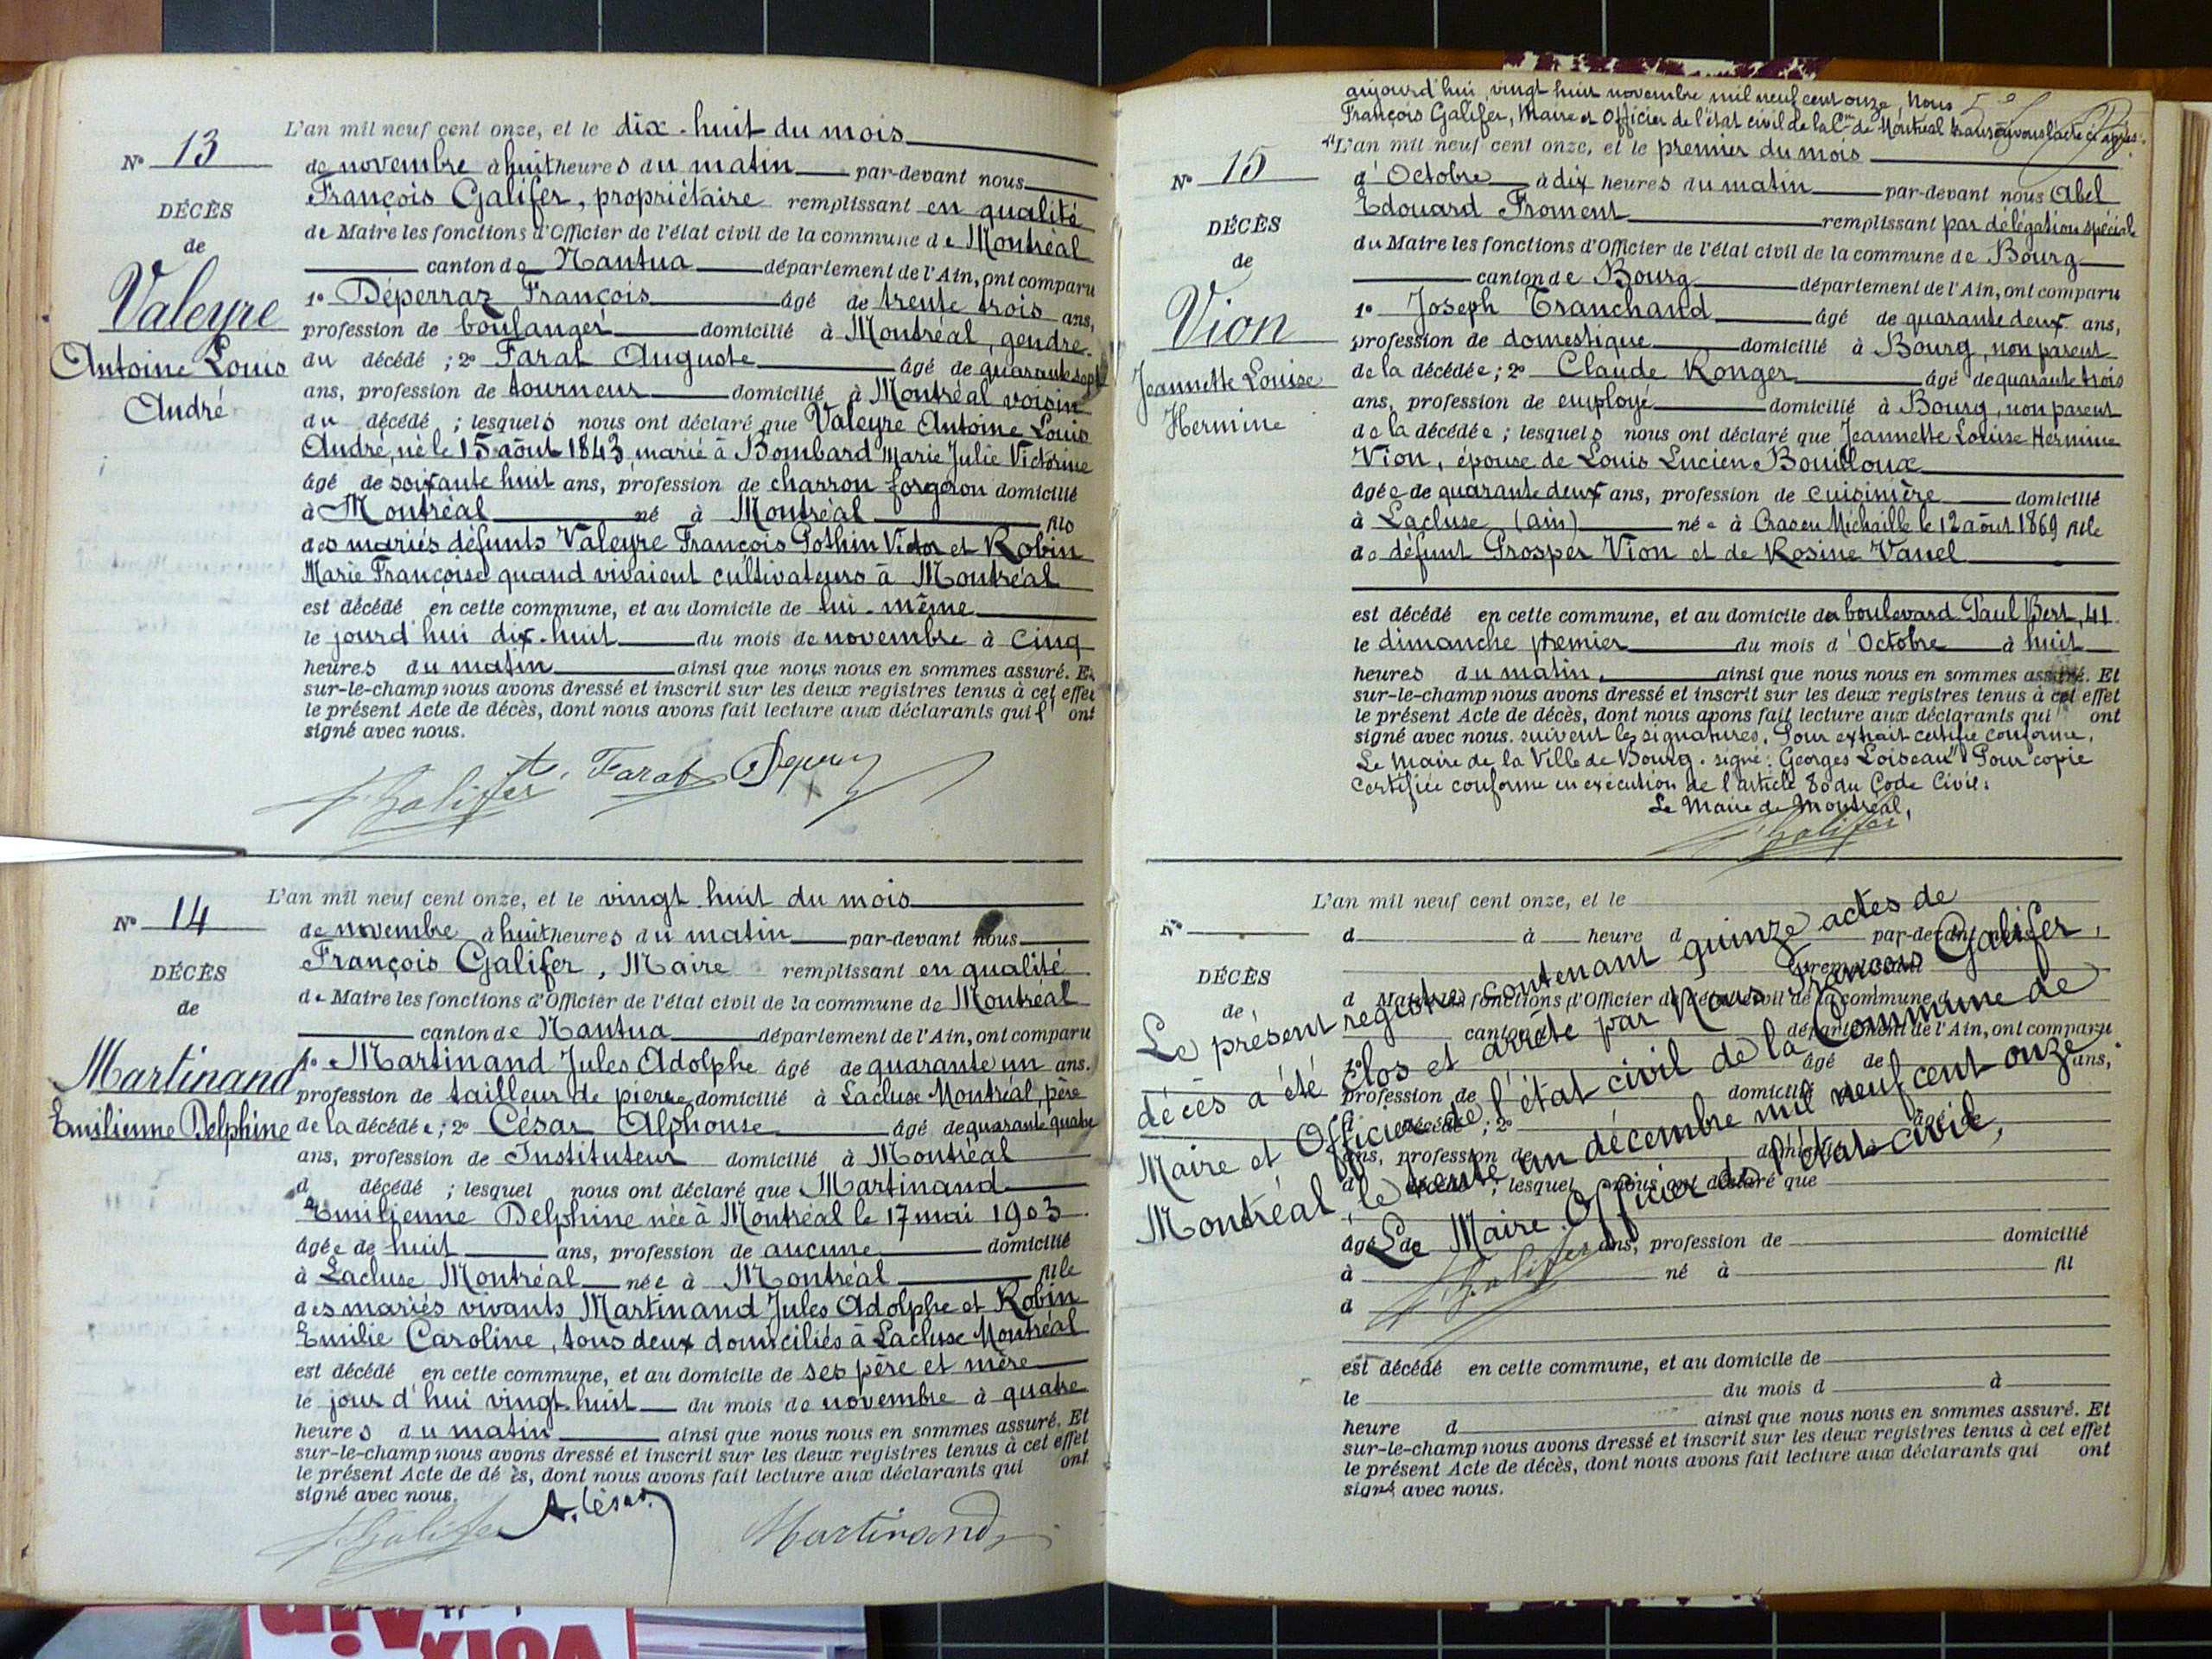 N° 13
DÉCÈS
de
Valeyre
Antoine Louis
André
L'an mil neuf cent onze, et le dix-huit du mois
de novembre à huit heures du matin par-devant nous
François Galifer, propriétaire remplissant en qualité
de Maire les fonctions d'Officier de l'état civil de la commune de Montréal
canton de Nantua département de l'Ain, ont comparu
1° Déperraz François âgé de trente trois ans,
profession de boulanger domicilié à Montréal, gendre
du décédé ; 2° Farat Auguste âgé de quarante sept
ans, profession de tourneur domicilié à Montréal voisin
du décédé ; lesquels nous ont déclaré que Valeyre Antoine Louis
André, né le 15 août 1843, marié à Bombard Marie Julie Victorine
âgé de soixante huit ans, profession de charron forgeron domicilié
à Montréal né à Montréal fils
des mariés défunts Valeyre François Pothin Victor et Robin
Marie Françoise quand vivaient cultivateurs à Montréal
est décédé en cette commune, et au domicile de lui-même
le jourd'hui dix-huit du mois de novembre à cinq
heures du matin ainsi que nous nous en sommes assuré. Et
sur-le-champ nous avons dressé et inscrit sur les deux registres tenus à cet effet
le présent Acte de décès, dont nous avons fait lecture aux déclarants qui l'ont
signé avec nous.
Galifer Farat
N° 14
DÉCÈS
de
Martinand
Emilienne Delphine
L'an mil neuf cent onze, et le vingt huit du mois
de novembre à huit heures du matin par-devant nous
François Galifer, Maire remplissant en qualité
de Maire les fonctions d'Officier de l'état civil de la commune de Montréal
canton de Nantua département de l'Ain, ont comparu
1° Martinand Jules Adolphe âgé de quarante un ans.
profession de tailleur de pierre domicilié à Lacluse Montréal, père
de la décédée ; 2° César Alphonse âgé de quarante quatre
ans, profession de Instituteur domicilié à Montréal
d décédé ; lesquel nous ont déclaré que Martinand
Emilienne Delphine née à Montréal le 17 mai 1903
âgée de huit ans, profession de aucune domicilié
à Lacluse Montréal née à Montréal fille
des mariés vivants Martinand Jules Adolphe et Robin
Emilie Caroline, tous deux domiciliés à Lacluse Montréal
est décédé en cette commune, et au domicile de ses père et mère
le jour d'hui vingt-huit du mois de novembre à quatre
heures du matin ainsi que nous nous en sommes assuré. Et
sur-le-champ nous avons dressé et inscrit sur les deux registres tenus à cet effet
le présent Acte de dé ès, dont nous avons fait lecture aux déclarants qui ont
signé avec nous.
Galifer A. César Martinand
aujourd'hui, vingt huit novembre mil neuf cent onze, Nous
François Galifer, Maire et Officier de l'état civil de la Cne de Montréal transcrivons l'acte ci après :
N° 15
DÉCÈS
de
Vion
Jeannette Louise
Hermine
"L'an mil neuf cent onze, et le premier du mois
d'Octobre à dix heures du matin par-devant nous Abel
Edouard Froment remplissant par délégation spéciale
du Maire les fonctions d'Officier de l'état civil de la commune de Bourg
canton de Bourg département de l'Ain, ont comparu
1° Joseph Tranchand âgé de quarante deux ans,
profession de domestique domicilié à Bourg, non parent
de la décédée ; 2° Claude Ronger âgé de quarante trois
ans, profession de employé domicilié à Bourg, non parent
de la décédée ; lesquels nous ont déclaré que Jeannette Louise Hermine
Vion, épouse de Louis Lucien Bouilloux
âgée de quarante deux ans, profession de cuisinière domicilié
à Lacluse (ain) née à Craz en Michaille le 12 août 1869 fille
de défunt Prosper Vion et de Rosine Vanel
est décédé en cette commune, et au domicile de boulevard Paul Bert, 41
le dimanche premier du mois d'Octobre à huit
heures du matin, ainsi que nous nous en sommes assuré. Et
sur-le-champ nous avons dressé et inscrit sur les deux registres tenus à cet effet
le présent Acte de décès, dont nous avons fait lecture aux déclarants qui ont
signé avec nous. suivent les signatures. Pour extrait certifié conforme,
Le Maire de la Ville de Bourg. signé : Georges Loiseau" Pour copie
certifiée conforme en exécution de l'article 80 du Code Civil :
Le Maire de Montréal,
Galifer
N°
DÉCÈS
de
L'an mil neuf cent onze, et le
d à heure d par-devant nous
remplissant
d Maire les fonctions d'Officier de l'état civil de la commune d
canton d département de l'Ain, ont comparu
1° âgé de ans,
profession de domicilié
d décédé ; 2° âgé de
ans, profession de domicilié
d décédé ; lesquel nous ont déclaré que
âgé de ans, profession de domicilié
à né à fil
d
Le présent registre contenant quinze actes de
décès a été clos et arrêté par Nous François Galifer,
Maire et Officier de l'état civil de la Commune de
Montréal, le trente un décembre mil neuf cent onze.
Le Maire Officier de l'état civil,
Galifer
est décédé en cette commune, et au domicile de
le du mois d à
heure d ainsi que nous nous en sommes assuré. Et
sur-le-champ nous avons dressé et inscrit sur les deux registres tenus à cet effet
le présent Acte de décès, dont nous avons fait lecture aux déclarants qui ont
signé avec nous.